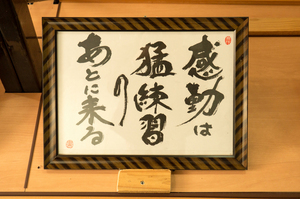 感動は
猛練習
の
あとに来る